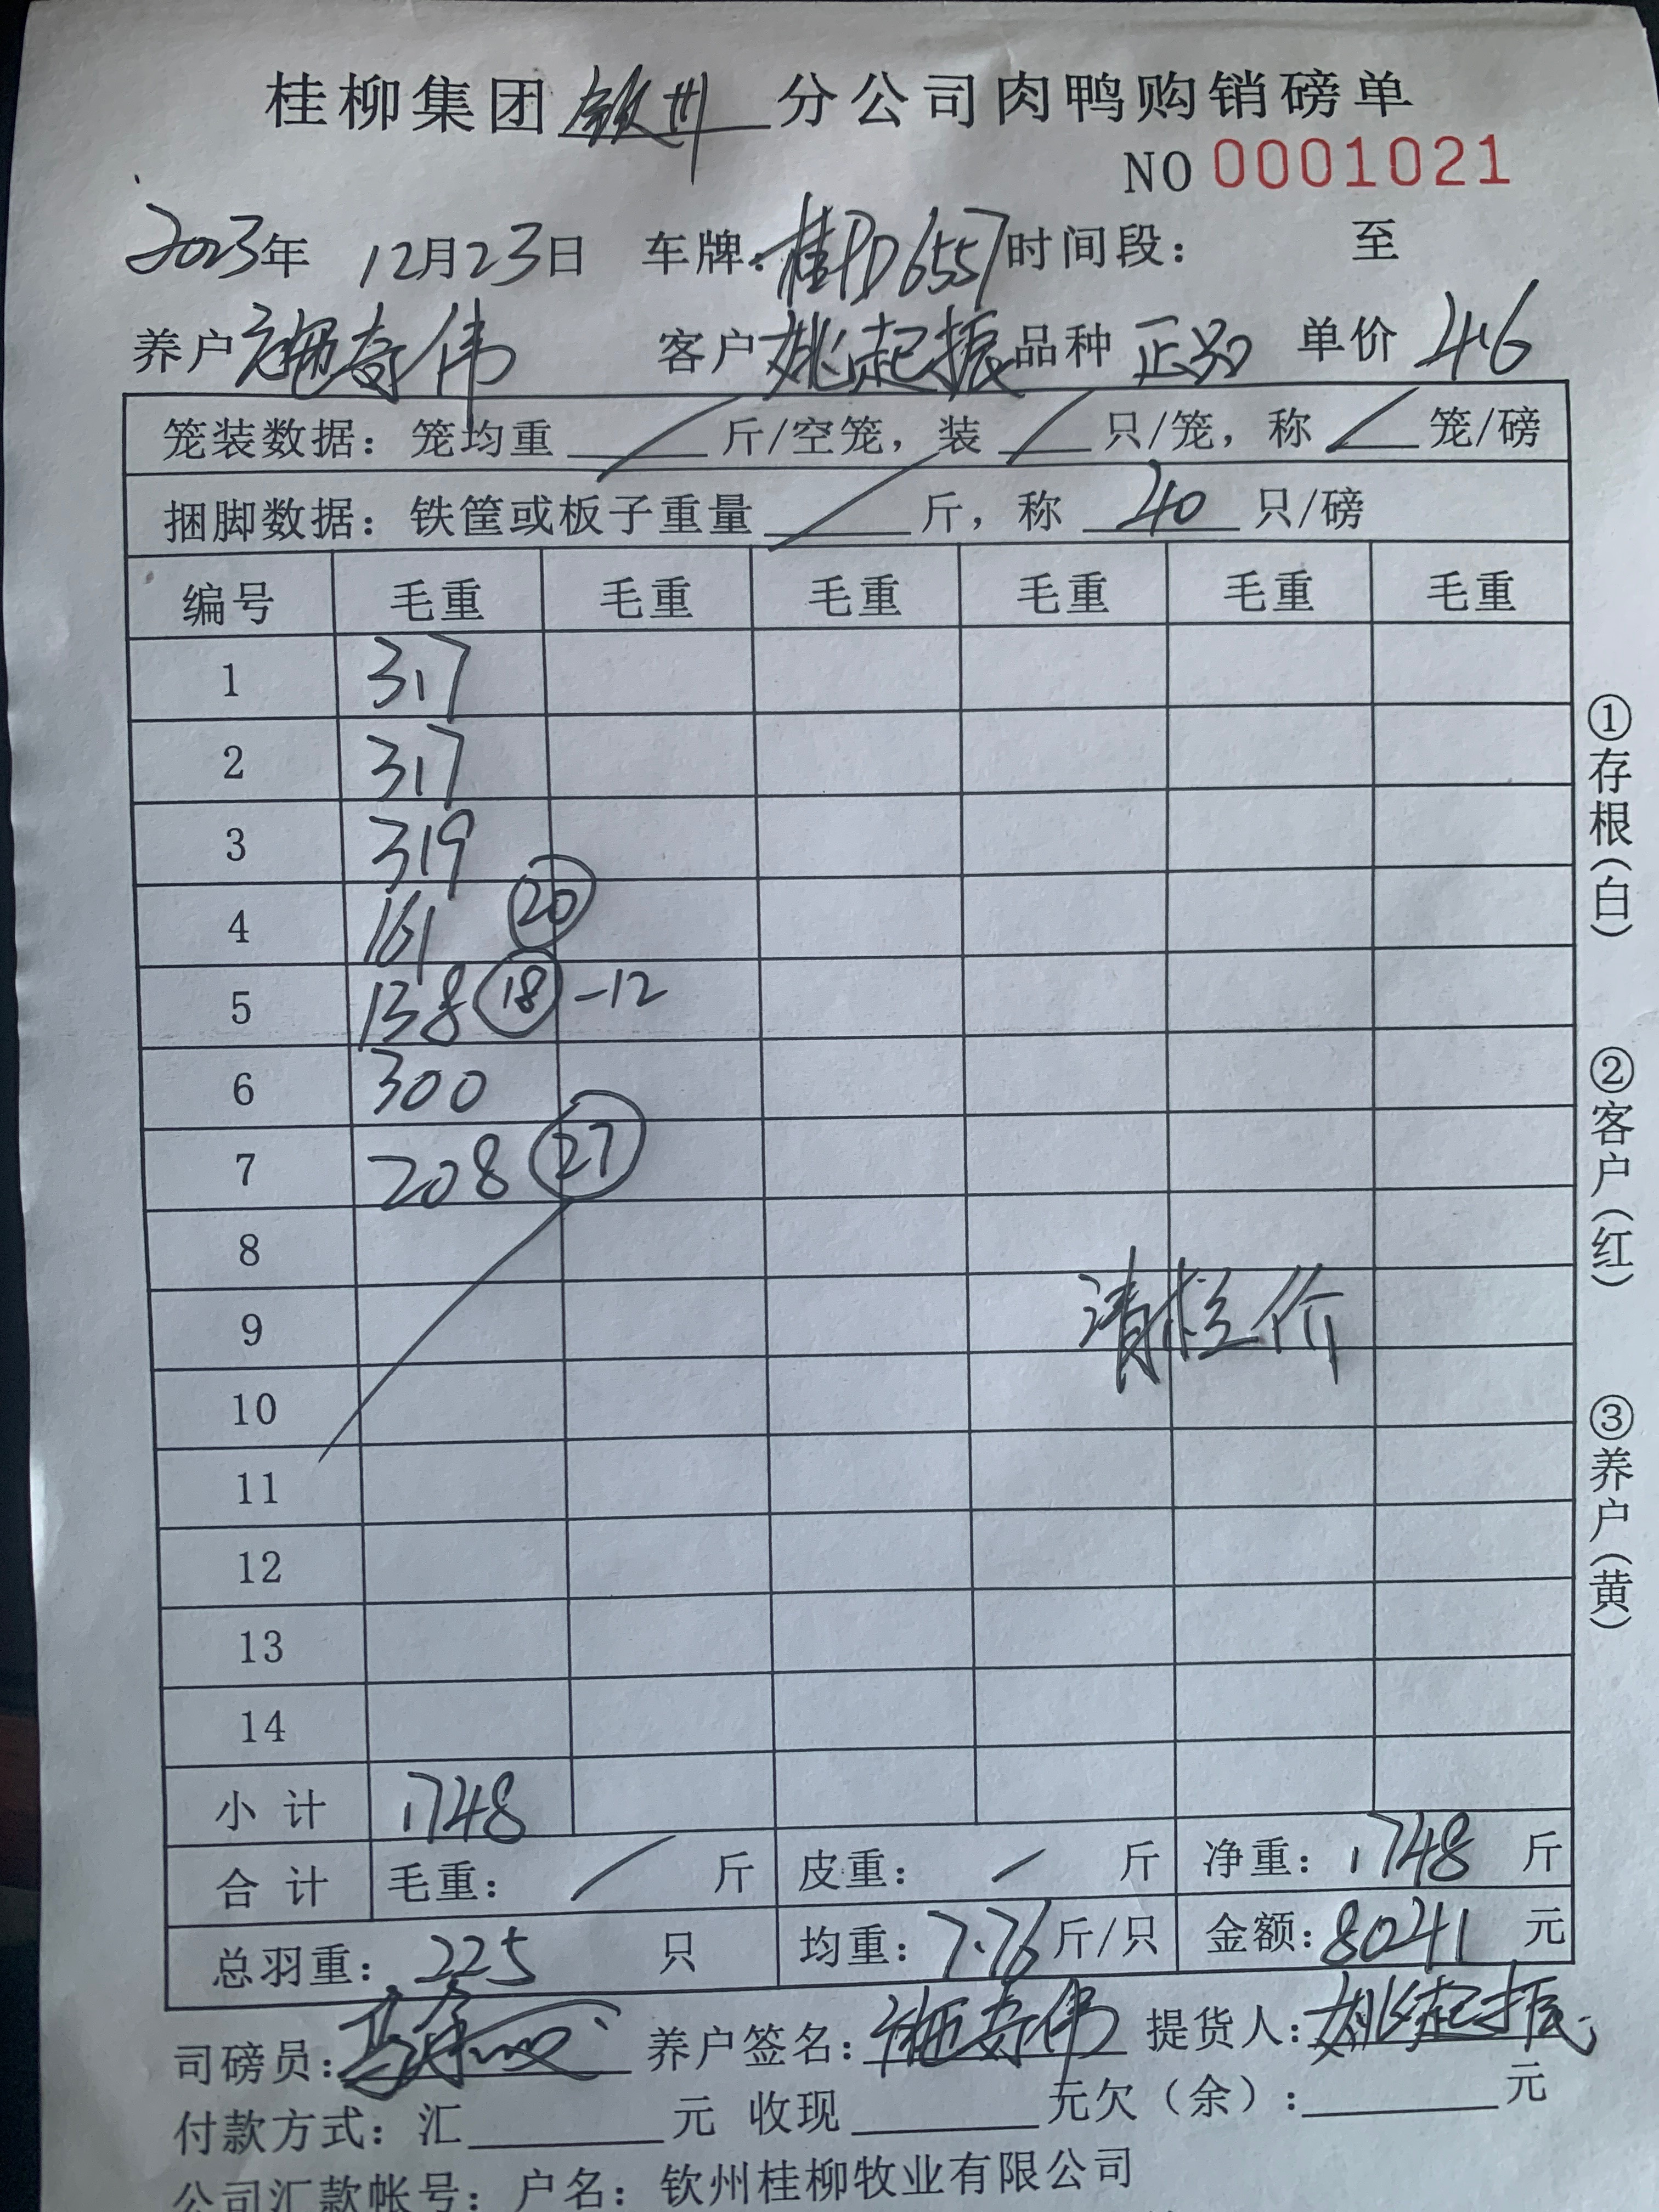 桂柳集团钦州分公司肉鸭购销磅单
NO 0001021
2023年 12月23日 车牌:桂PD6557 时间段: 至
养户施奇伟 客户姚起振 品种 正品 单价 4.6
笼装数据:笼均重 / 斤/空笼,装 / 只/笼,称 / 笼/磅
捆脚数据:铁筐或板子重量 / 斤,称 40 只/磅
编号 毛重 毛重 毛重 毛重 毛重 毛重
1 317
2 317
3 319
4 161 20
5 138 18 -12
6 300
7 208 27
8
9 清栏价
10
11
12
13
14
小计 1748
合计 毛重: / 斤 皮重: / 斤 净重: 1748 斤
总羽重: 225 只 均重: 7.76 斤/只 金额: 8041 元
司磅员: 养户签名:施奇伟 提货人:姚起振
付款方式:汇 元 收现 元欠(余): 元
公司汇款帐号:户名:钦州桂柳牧业有限公司
①存根(白)
②客户(红)
③养户(黄)